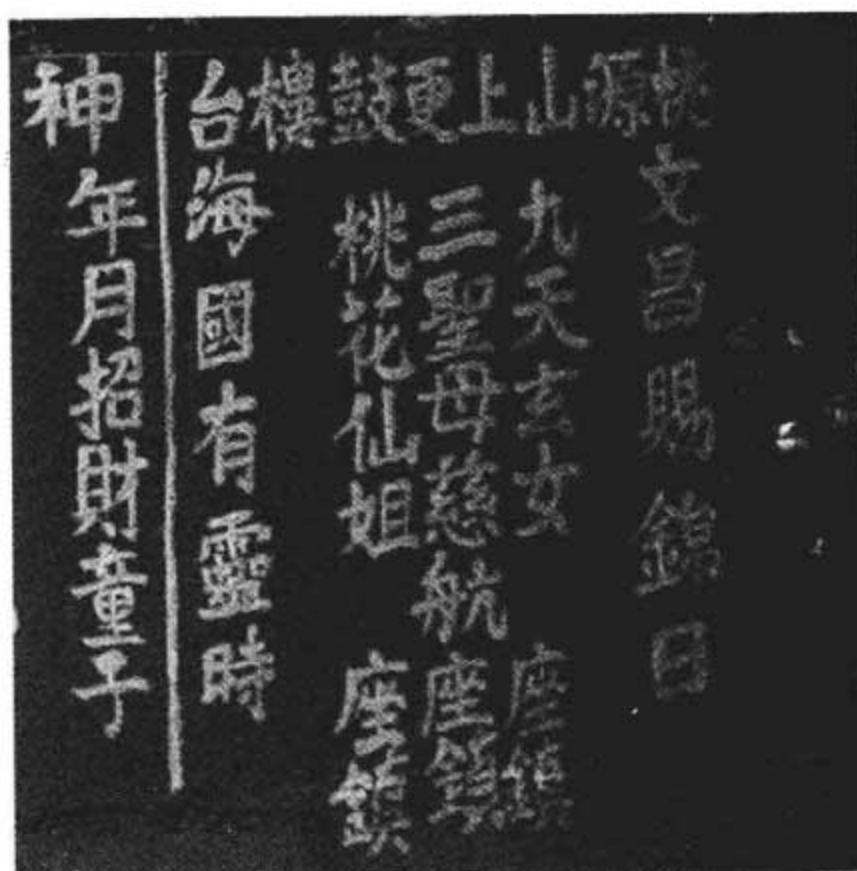 桃源山上更鼓樓台
文昌賜錦日
九天玄女 座鎮
三聖母慈航座鎮
桃花仙姐 座鎮
海國有靈時
神
年月招財童子